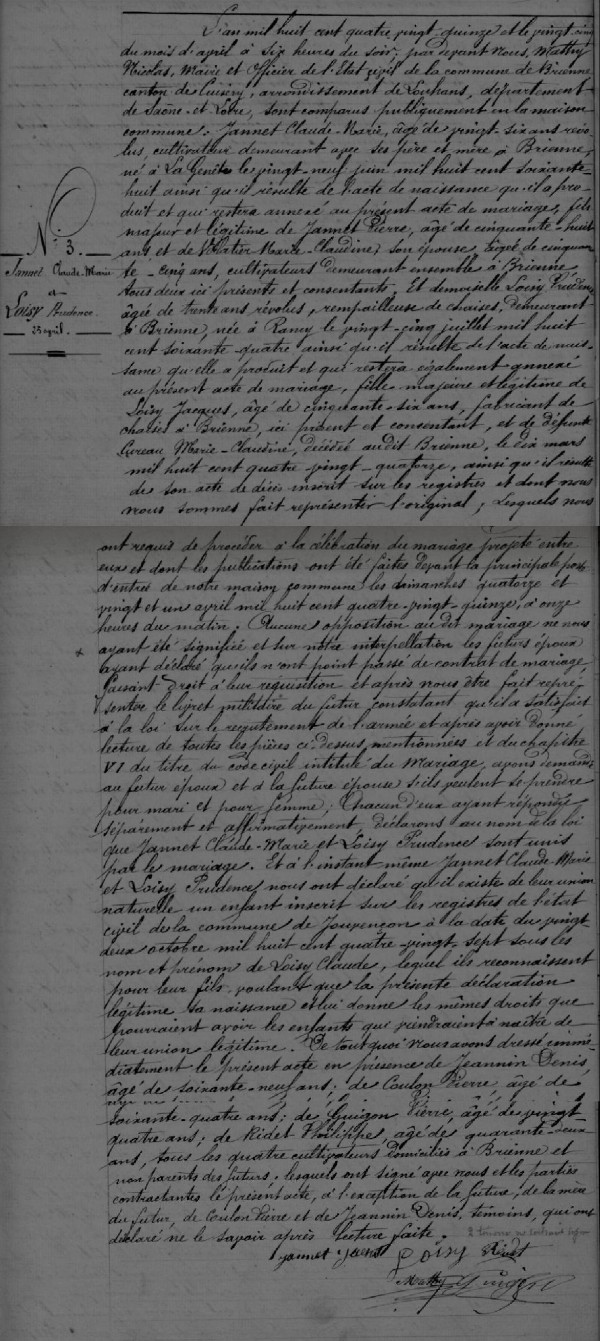 L'an mil huit cent quatre vingt-quinze et le vingt-cinq
du mois d'avril à six heures du soir, par devant Nous, Mathy
Nicolas, Maire et Officier de l'Etat civil de la commune de Brienne
canton de Cuisery, arrondissement de Louhans, département
de Saône-et-Loire, sont comparus publiquement en la maison
commune. Jannet Claude-Marie, âgé de vingt-six ans révo-
lus, cultivateur demeurant avec ses père et mère à Brienne,
né à La Genête le vingt-neuf juin mil huit cent soixante-
huit ainsi qu'il résulte de l'acte de naissance qu'il a pro-
duit et qui restera annexé au présent acte de mariage, fils
majeur et légitime de Jannet Pierre, âgé de cinquante-huit
ans et de Marie-Claudine, son épouse, âgée de cinquan-
te-cinq ans, cultivateurs demeurant ensemble à Brienne
tous deux ici présents et consentants. Et demoiselle Loisy Prudence
âgée de trente ans révolus, rempailleuse de chaises, demeurant
à Brienne, née à Rancy le vingt-cinq juillet mil huit
cent soixante-quatre ainsi qu'il résulte de l'acte de nais-
sance qu'elle a produit et qui restera également annexé
au présent acte de mariage, fille majeure et légitime de
Loisy Jacques, âgé de cinquante-six ans, fabricant de
chaises à Brienne, ici présent et consentant, et de défunte
Marie-Claudine, décédée audit Brienne, le dix mars
mil huit cent quatre-vingt-quatorze, ainsi qu'il résulte
de son acte de décès inscrit sur les registres et dont nous
nous sommes fait représenter l'original; Lesquels nous
N° 3.
Jannet Claude-Marie
et
Loisy Prudence.
25 avril.
ont requis de procéder à la célébration du mariage projeté entre
eux et dont les publications ont été faites devant la principale porte
d'entrée de notre maison commune les dimanches quatorze et
vingt et un avril mil huit cent quatre-vingt-quinze, à onze
heures du matin. Aucune opposition au dit mariage ne nous
ayant été signifiée et sur notre interpellation les futurs époux
ayant déclaré qu'ils n'ont point passé de contrat de mariage,
faisant droit à leur réquisition et après nous être fait repré-
senter le livret militaire du futur constatant qu'il a satisfait
à la loi sur le recrutement de l'armée et après avoir donné
lecture de toutes les pièces ci-dessus mentionnées et du chapitre
VI du titre du code civil intitulé du Mariage, avons demandé
au futur époux et à la future épouse s'ils veulent se prendre
pour mari et pour femme; Chacun d'eux ayant répondu
séparément et affirmativement, déclarons au nom de la loi
que Jannet Claude-Marie et Loisy Prudence sont unis
par le mariage. Et à l'instant même Jannet Claude-Marie
et Loisy Prudence nous ont déclaré qu'il existe de leur union
naturelle un enfant inscrit sur les registres de l'état
civil de la commune de Jouvençon à la date du vingt-
deux octobre mil huit cent quatre-vingt-sept sous les
nom et prénom de Loisy Claude, lequel ils reconnaissent
pour leur fils voulant que la présente déclaration
légitime sa naissance et lui donne les mêmes droits que
pourraient avoir les enfants qui viendraient à naître de
leur union légitime. De tout quoi nous avons dressé immé-
diatement le présent acte en présence de Jeannin Denis
âgé de soixante-neuf ans; de Coulon Pierre âgé de
soixante-quatre ans; de Guigon Pierre, âgé de vingt-
quatre ans; de Ridet Philippe, âgé de quarante-deux
ans, tous les quatre cultivateurs domiciliés à Brienne et
non parents des futurs; lesquels ont signé avec nous et les parties
contractantes le présent acte, à l'exception de la future, de la mère
du futur, de Coulon Pierre et de Jeannin Denis, témoins, qui ont
déclaré ne le savoir après lecture faite.
Jannet Loisy Ridet
Mathy Guigon